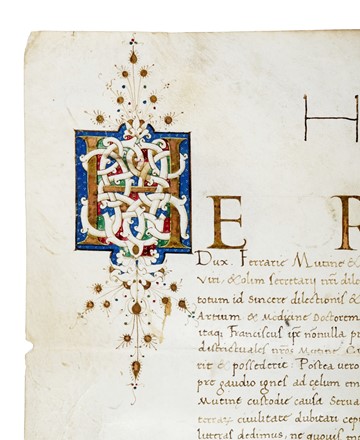 H
HE R
Dux. Ferrarie Mutine &
Viri, & olim secretarij nri dile
totum id sincere dilectionis &
Artium & Medicine Doctorem
itaq Franciscus ipe nonulla p
districtuales nros Mutine
rit & possederit. Postea vero
pre gaudio ignes ad celum em
Mutine custodie causa Serva
civilitate dubitari cep
dedimus, ne quovis